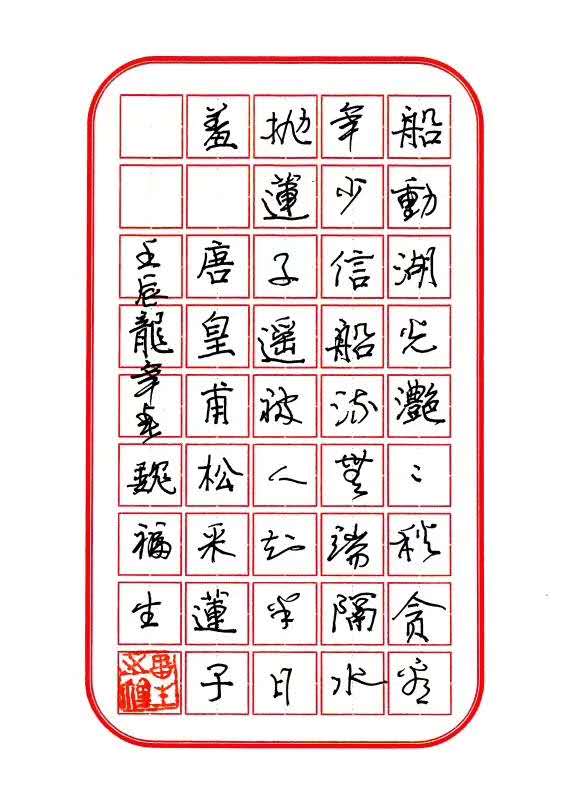 船動湖光灩〻秋貪看
年少信船流無端隔水
抛蓮子遥被人知半日
羞 唐皇甫松采蓮子
壬辰龍年魏福生